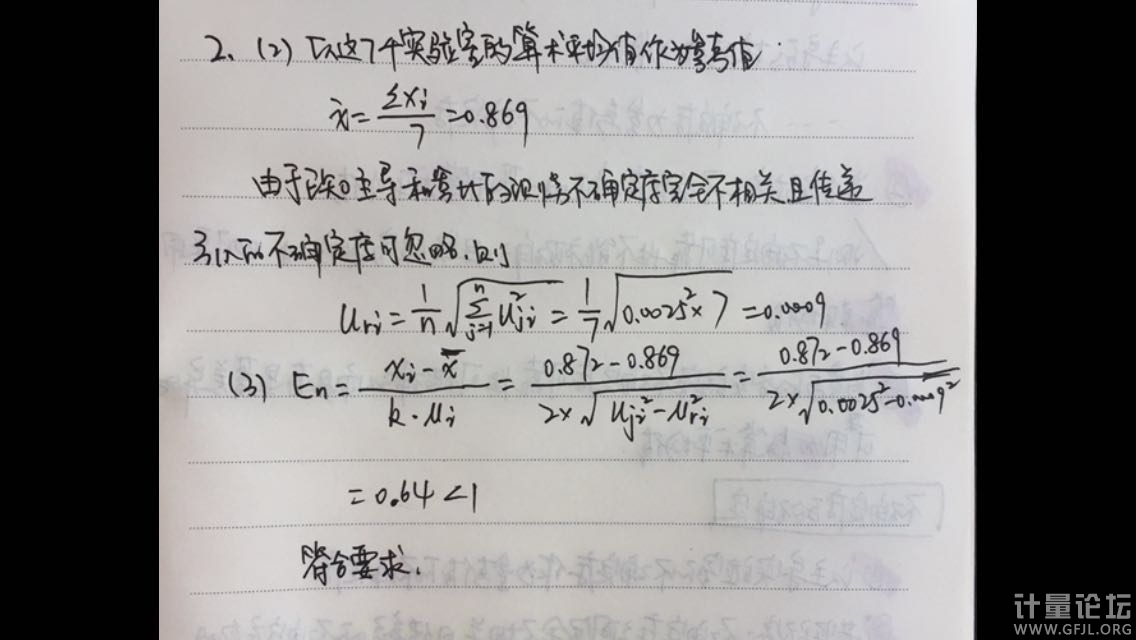 2、(2) 以这7个实验室的算术平均值作为参考值.
x̄ = Σxi / 7 = 0.869
由于 主导和参比的 不确定度完全不相关且传递
引入的不确定度可忽略.则
uri = 1/n √(Σ(j=1→n) uji²) = 1/7 √(0.0025² × 7) = 0.0009
(3) En = (xi - x̄) / (k·μi) = (0.872 - 0.869) / (2×√(uji² - uri²)) = (0.872 - 0.869) / (2×√(0.0025² - 0.0009²))
= 0.64 < 1
符合要求.
计量论坛
WWW.GFJL.ORG